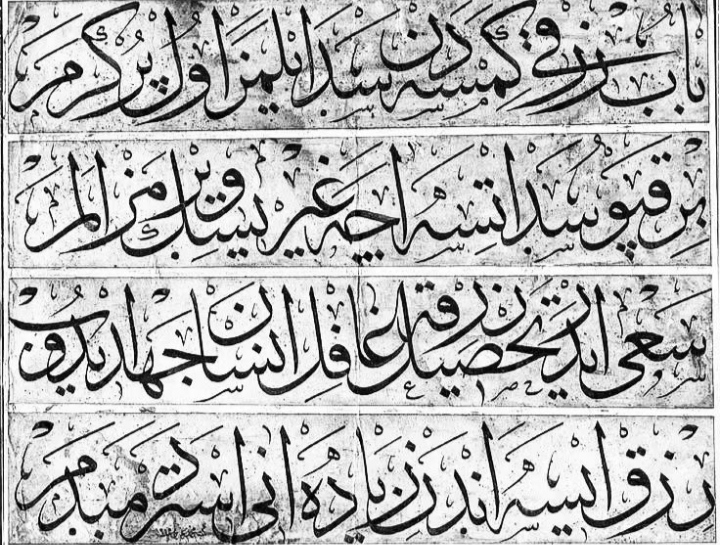 باب رزقی کمسه دن سد ایلمز اول پر کرم
بر قپو سد اتسه اچه ویرمز الم
سعی ایدر تحصیل رزقه غافل انسان ایدوب
رزق ایسه اندن زیاده انی استر دمبدم